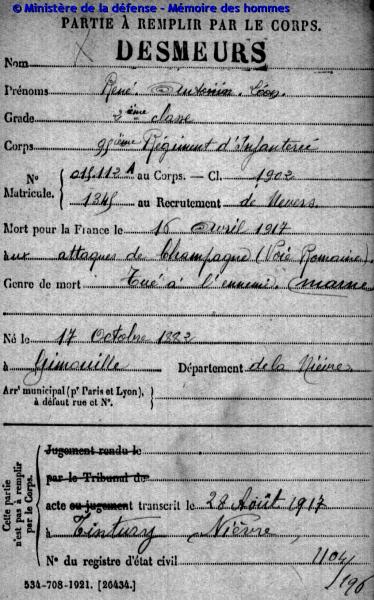 © Ministère de la défense - Mémoire des hommes
PARTIE À REMPLIR PAR LE CORPS.
DESMEURS
Nom
Prénoms René. Antonin. Léon.
Grade 2ème classe
Corps 95ème Régiment d'Infanterie
N° 015.112 A au Corps. — Cl. 1902
Matricule. 1345 au Recrutement de Nevers
Mort pour la France le 16 Avril 1917
aux attaques de Champagne (Voie Romaine).
Genre de mort Tué à l'ennemi. marne
Né le 17 Octobre 1882
à Gimouille Département de la Nièvre
Arr' municipal (p' Paris et Lyon), à défaut rue et N°.
Cette partie n'est pas à remplir par le Corps.
Jugement rendu le
par le Tribunal de
acte ou jugement transcrit le 28 Août 1917
à Tintury Nièvre
N° du registre d'état civil 1104/196
534-708-1921. [26434.]